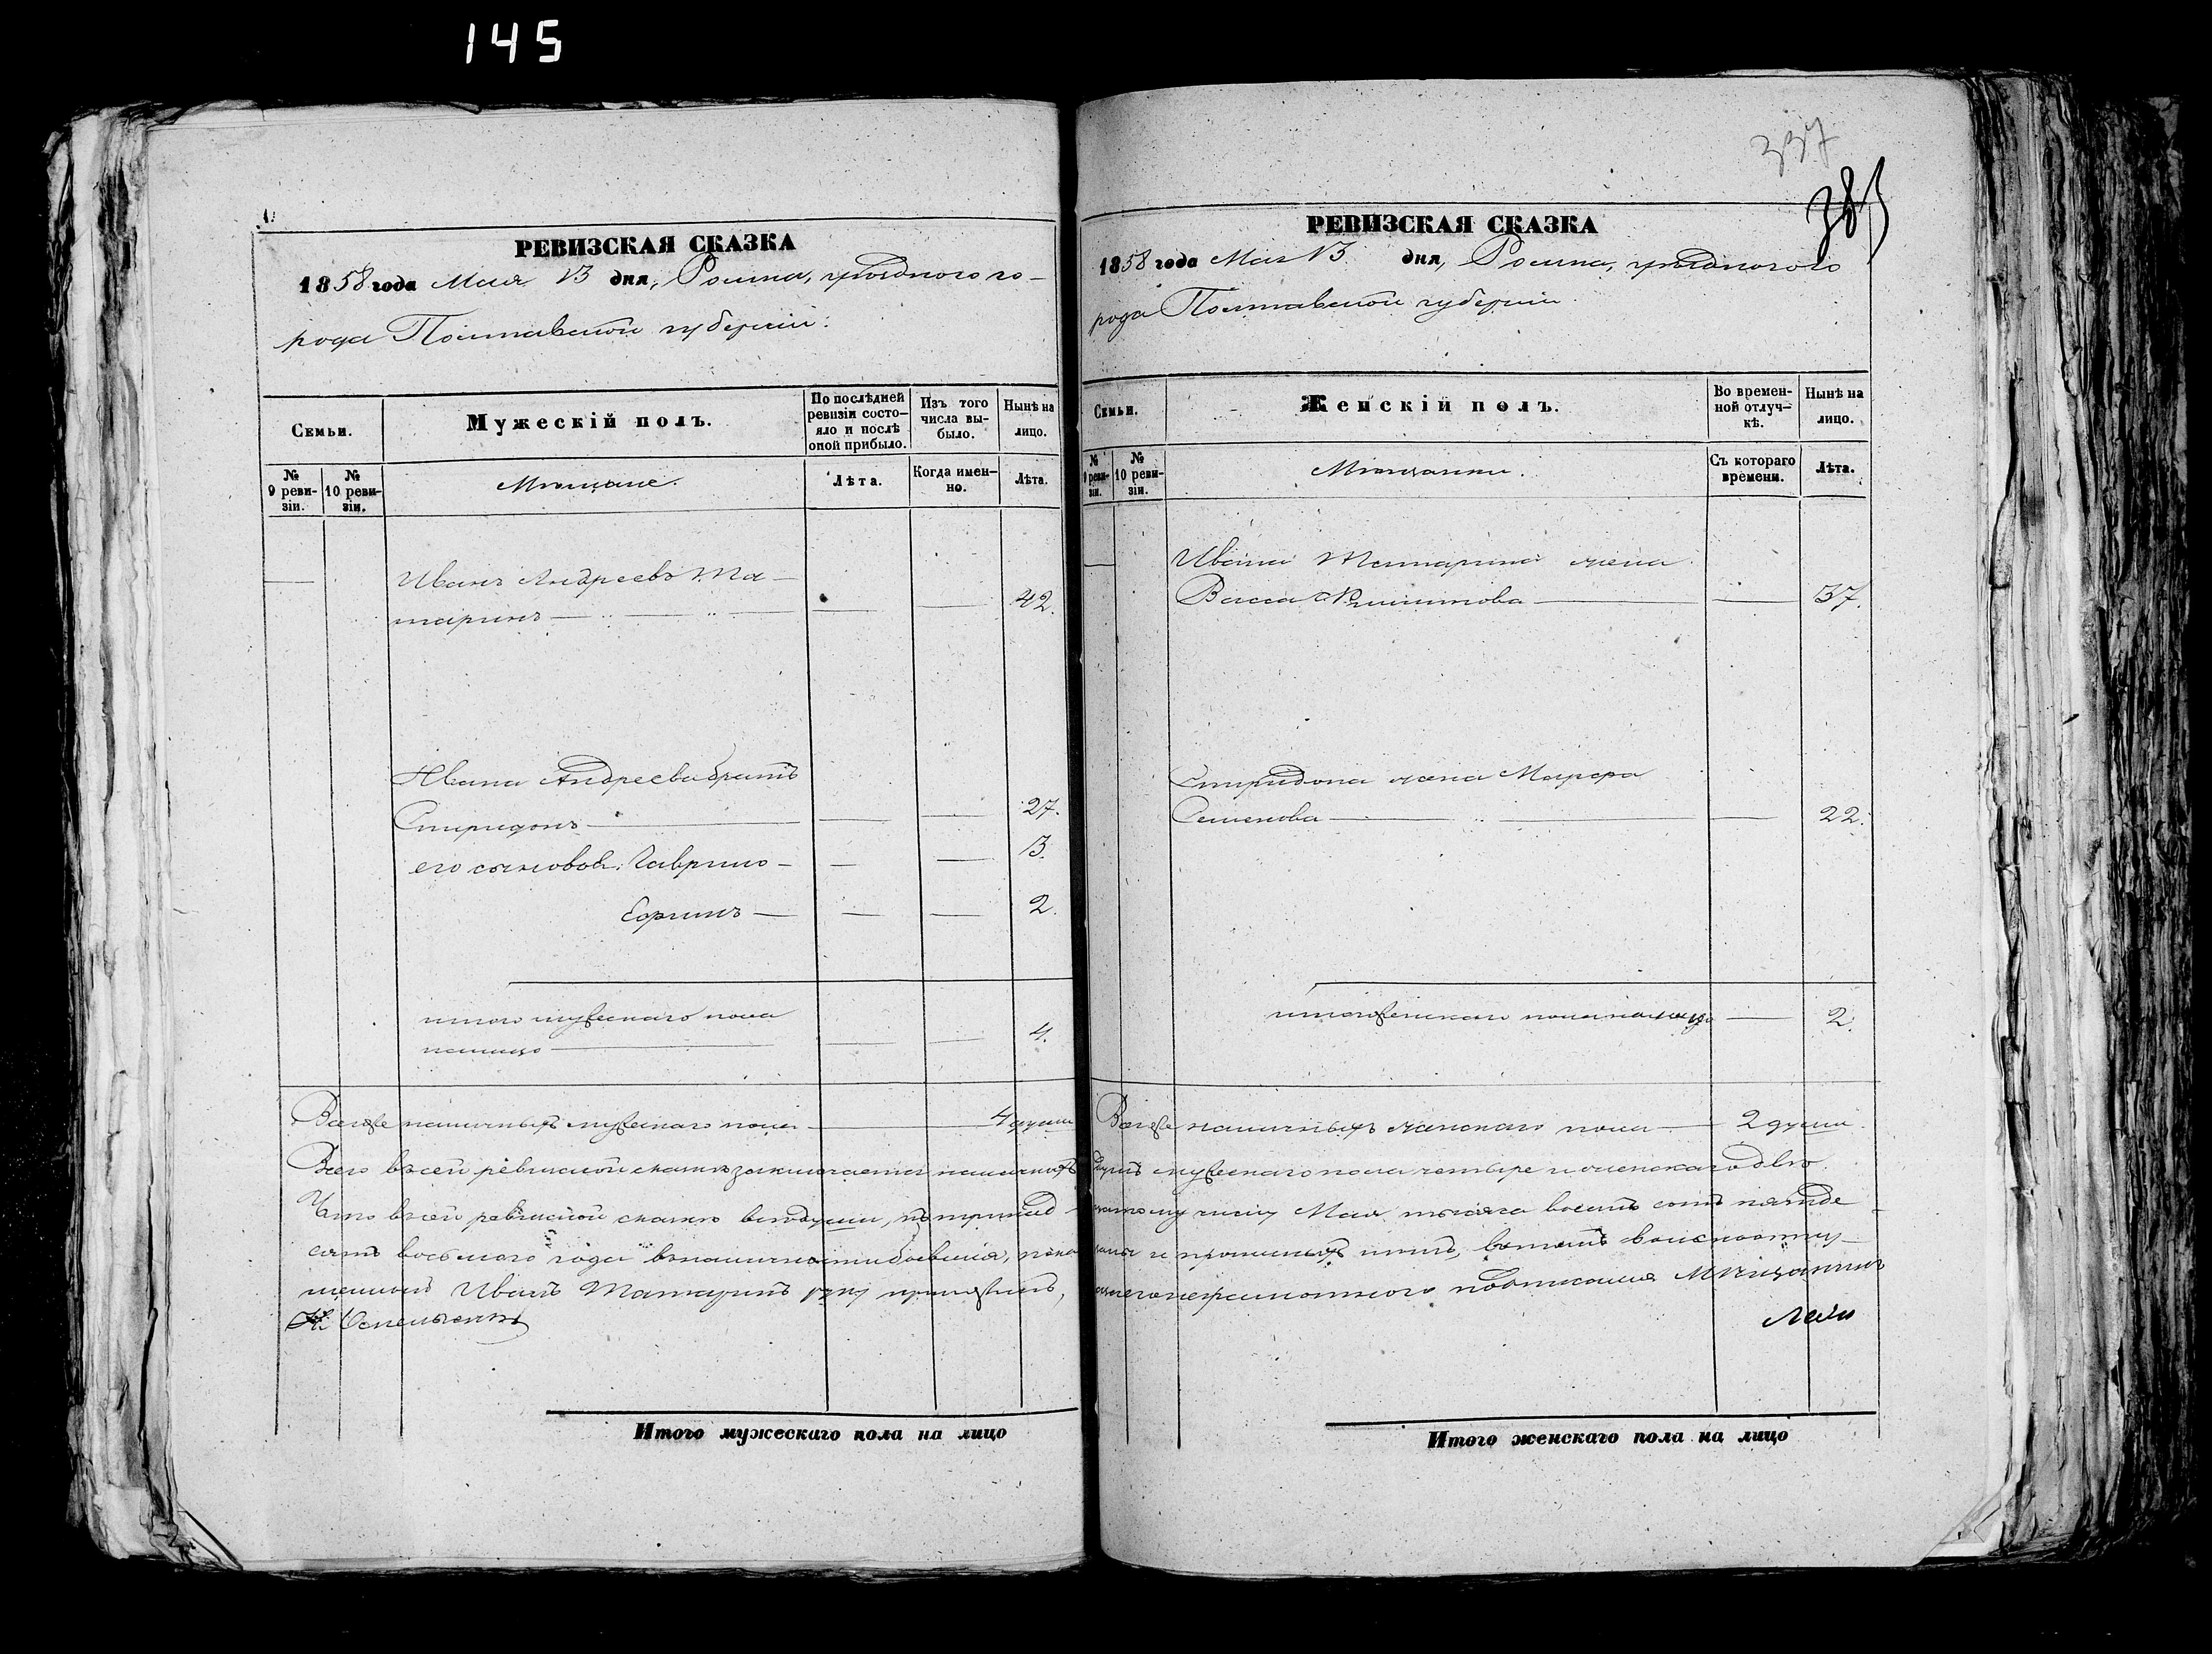 145
РЕВИЗСКАЯ СКАЗКА
1858 года Мая 13 дня, Ромна, уѣзднаго го-
рода Полтавской губерніи.
Семьи.
Мужескій полъ.
По послѣдней
ревизіи состо-
яло и послѣ
оной прибыло.
Изъ того
числа вы-
было.
Нынѣ на
лицо.
№
9 реви-
зіи.
№
10 реви-
зіи.
Мѣщане.
Лѣта.
Когда имен-
но.
Лѣта.
Иванъ Андреевъ Та-
таринъ 42.
Ивана Андреева братъ
Спиридонъ 27.
его сыновья: Гаврило 3.
Ефимъ 2.
итого мужескаго пола
налицо 4.
Всего же наличныхъ мужескаго пола 4 души
Всего въ сей ревизской сказкѣ заключается наличныхъ
Что въ сей ревизской сказкѣ всѣ души, къ тринад-
сятъ восьмого года въ наличности бывшія, пока
Иванъ Татаринъ руку приложилъ,
Итого мужескаго пола на лицо
337
385
РЕВИЗСКАЯ СКАЗКА
1858 года Мая 13 дня, Ромна, уѣзднаго го
рода Полтавской губерніи.
Семьи.
Женскій полъ.
Во времен-
ной отлуч-
кѣ.
Нынѣ на
лицо.
№
9 реви-
зіи.
№
10 реви-
зіи.
Мѣщанки.
Съ котораго
времени.
Лѣта.
Ивана Татарина жена
Васса 37.
Спиридона жена
Семенова 22.
итого женскаго пола налицо 2.
Всего же наличныхъ женскаго пола 2 души
душъ мужескаго пола четыре и женскаго двѣ.
цатому числу Мая тысяча восемь сотъ пятьде-
заны и прописныхъ нѣтъ, въ томъ
неграмотнаго подписался Мѣщанинъ
Итого женскаго пола на лицо